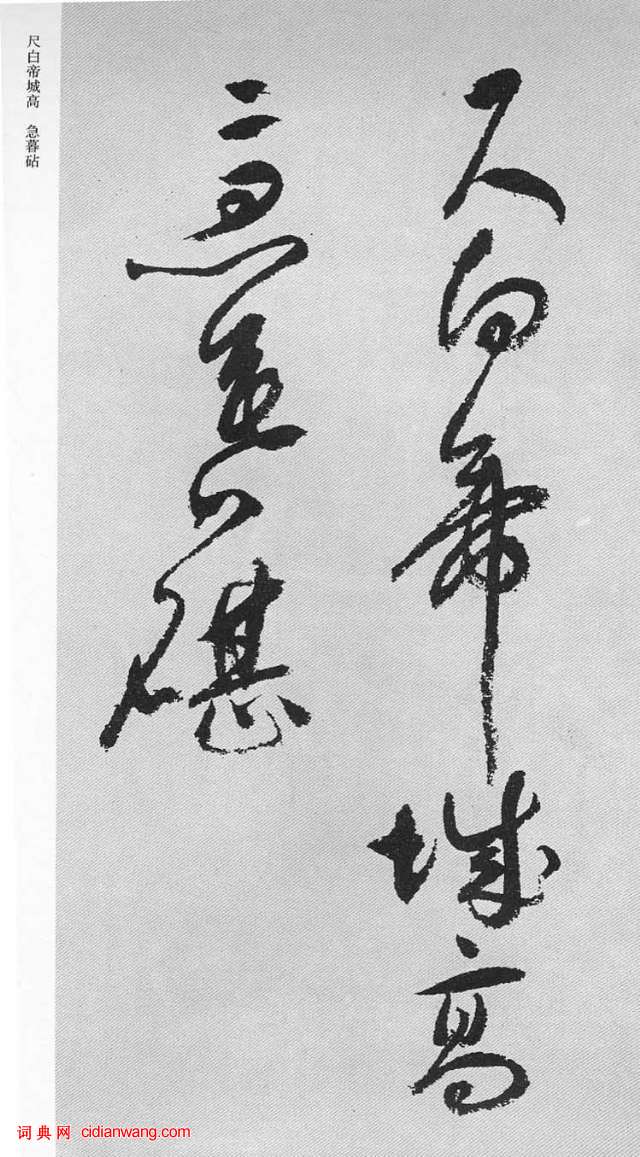 尺白帝城高
急暮碪
尺白帝城高 急暮砧
词典网 cidianwang.com